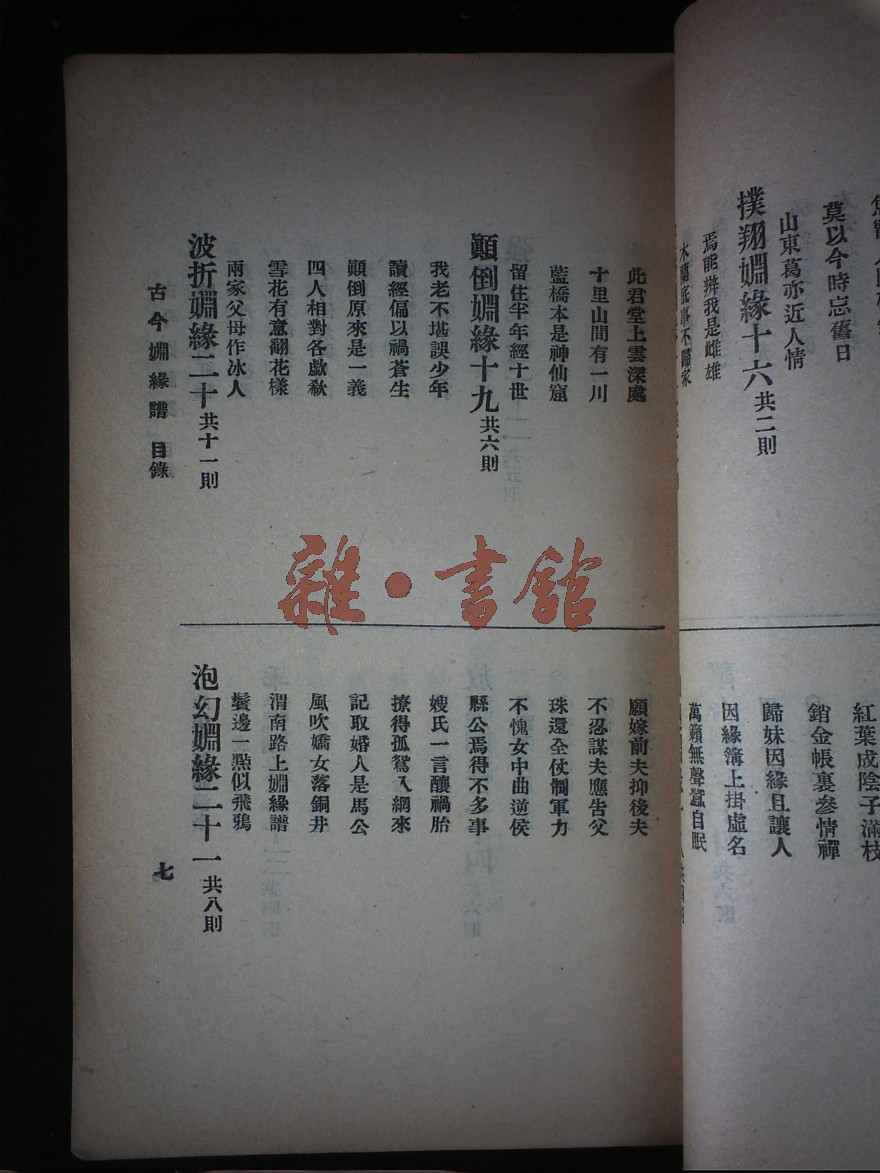 莫以今時忘舊日
山東葛亦近人情
撲翔婣緣十六 共二則
焉能辨我是雌雄
木蘭底事不歸家
紅葉成陰子滿枝
銷金帳裏參情禪
歸妹因緣且讓人
因緣簿上掛虛名
萬籟無聲蠶自眠
此君堂上雲深處
十里山間有一川
藍橋本是神仙窟
留住半年經十世
顚倒婣緣十九 共六則
我老不堪誤少年
讀經偏以禍蒼生
顚倒原來是一義
四人相對各歔欷
雪花有意翻花樣
兩家父母作冰人
波折婣緣二十 共十一則
願嫁前夫抑後夫
不忍謀夫應告父
珠還全仗制軍力
不愧女中曲逆侯
縣公焉得不多事
嫂氏一言釀禍胎
撩得孤鴛入網來
記取婚人是馬公
風吹嬌女落銅井
渭南路上婣緣譜
鬢邊一點似飛鴉
泡幻婣緣二十一 共八則
古今婣緣譜 目錄
七
雜·書館